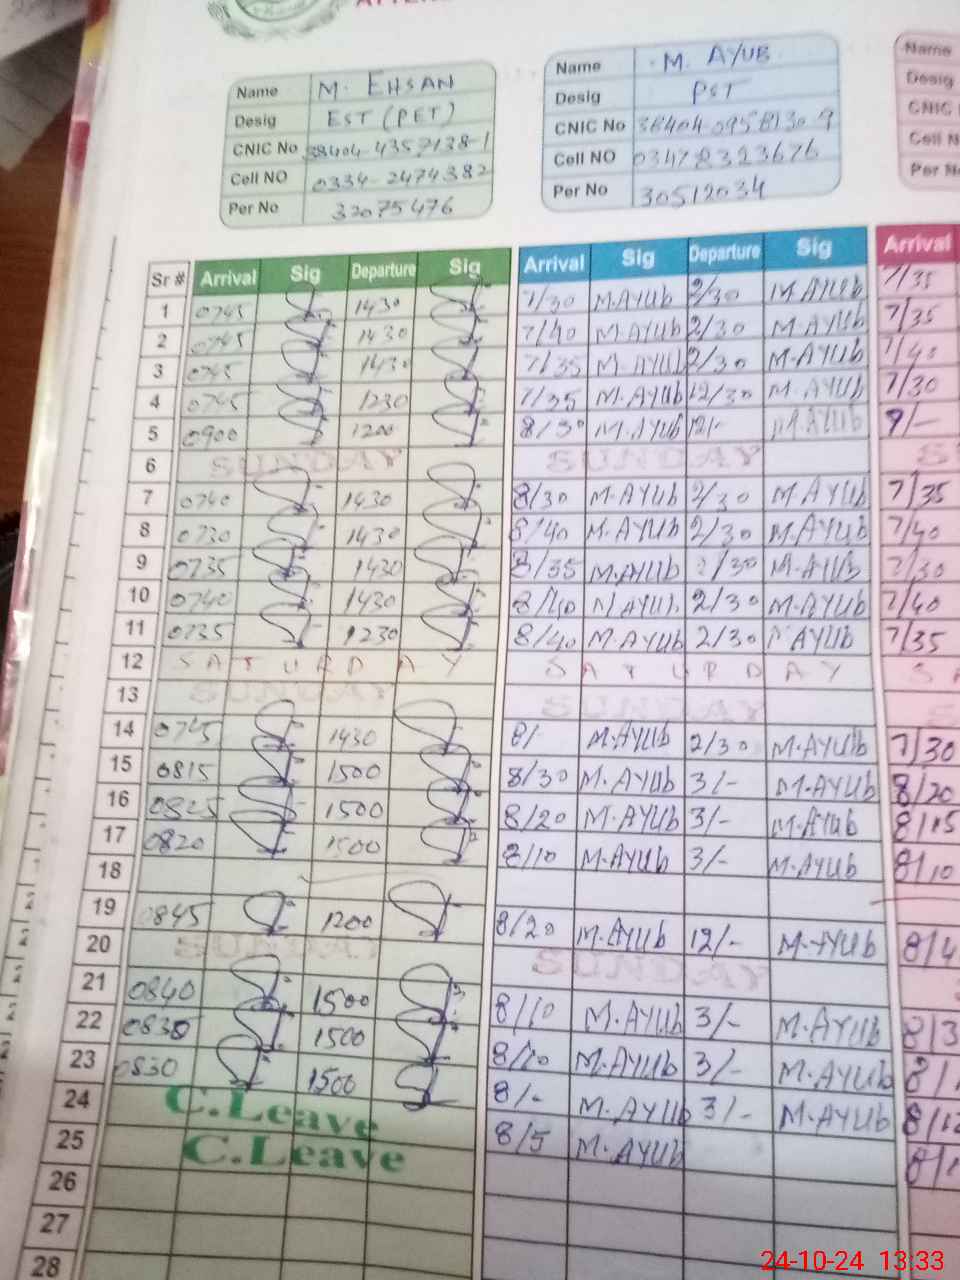 Name M. EHSAN
Desig EST (PET)
CNIC No 38404-4357138-1
Cell NO 0334-2474382
Per No 32075476
Name M. AYUB
Desig PST
CNIC No
Cell NO 03478323676
Per No 30512034
Name
Desig
CNIC
Cell N
Per No
Sr # Arrival Sig Departure Sig Arrival Sig Departure Sig Arrival
1 0745 1430 7/30 M.AYUb 2/30 M.AYUb 7/35
2 0745 1430 7/40 M.AYUb 2/30 M.AYUb 7/35
3 0745 1430 7/35 M.AYUb 2/30 M.AYUb 7/40
4 0745 1230 7/35 M.AYUb 12/30 M.AYUb 7/30
5 0900 1200 8/30 M.AYUb 12/- M.AYUb 9/-
6 SUNDAY SUNDAY S
7 0740 1430 8/30 M.AYUb 2/30 M.AYUb 7/35
8 0730 1430 8/40 M.AYUb 2/30 M.AYUb 7/40
9 0735 1430 8/35 M.AYUb /30 M.AYUb 7/30
10 0740 1430 8/40 M.AYUb 2/30 M.AYUb 7/40
11 0735 1230 8/40 M.AYUb 2/30 M.AYUb 7/35
12 SATURDAY SATURDAY SA
13 SUNDAY SUNDAY S
14 0745 1430 8/- M.AYUb 2/30 M.AYUb 7/30
15 0815 1500 8/30 M.AYUb 3/- M.AYUb 8/20
16 0825 1500 8/20 M.AYUb 3/- M.AYUb 8/15
17 0820 1500 8/10 M.AYUb 3/- M.AYUb 8/10
18
19 0845 1200 8/20 M.AYUb 12/- M.AYUb 8/4
20 SUNDAY SUNDAY
21 0840 1500 8/10 M.AYUb 3/- M.AYUb 8/3
22 0830 1500 8/10 M.AYUb 3/- M.AYUb
23 0830 1500 8/- M.AYUb 3/- M.AYUb
24 C.Leave 8/5 M.AYUb
25 C.Leave
26
27
28
24-10-24 13:33